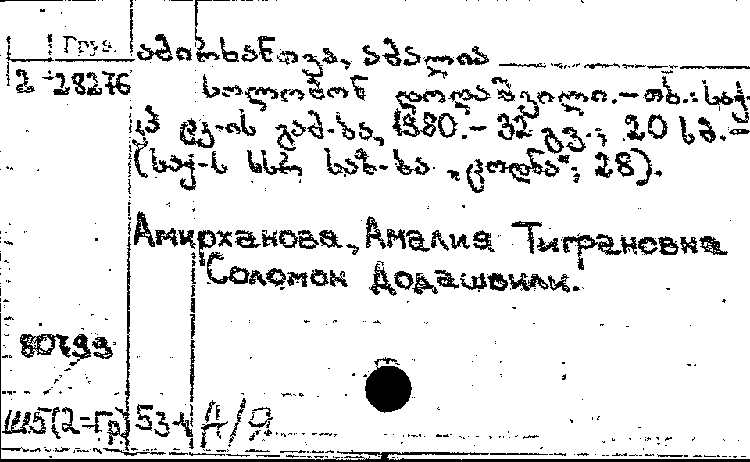 Груз.
2-28276
ამირხანოვა, ამალია
სოლომონ დოდაშვილი.–თბ.: საქ-
კპ ცკ-ის გამ-ბა, 1980.– 32 გვ.; 20 სმ.–
(საქ-ს სსრ საზ-ბა „ცოდნა“; 28).
Амирханова, Амалия Тиграновна
Соломон Додашвили.
Ш5(2=Гр) 53-4 А/Я